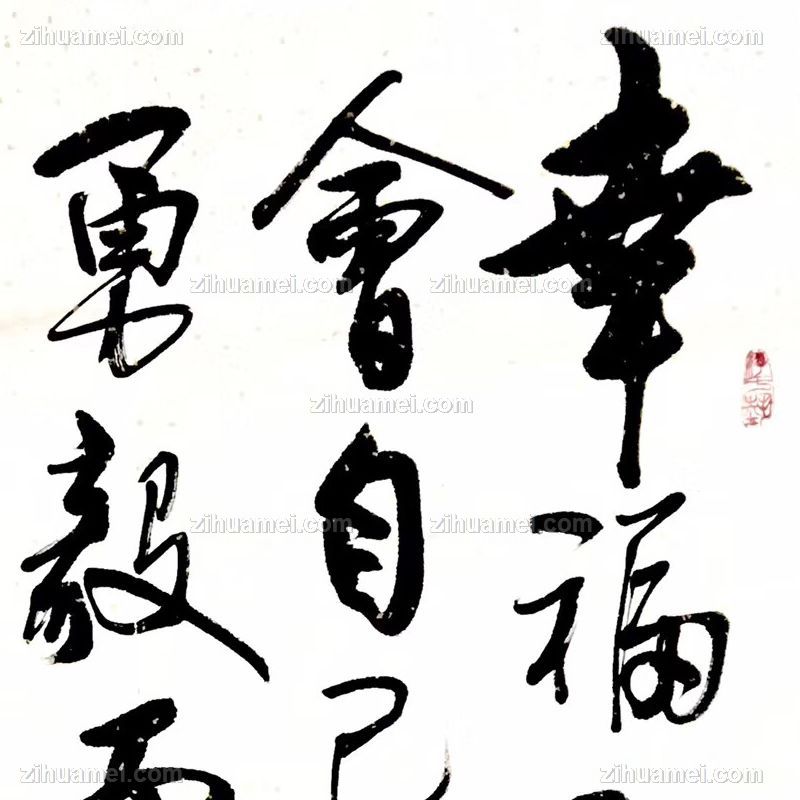 幸福
會自己
勇毅而
zihuamei.com
zihuamei.com
zihuamei.com
zihuamei.com
zihuamei.com
zihuamei.com
zihuamei.com
zihuamei.com
zihuamei.com